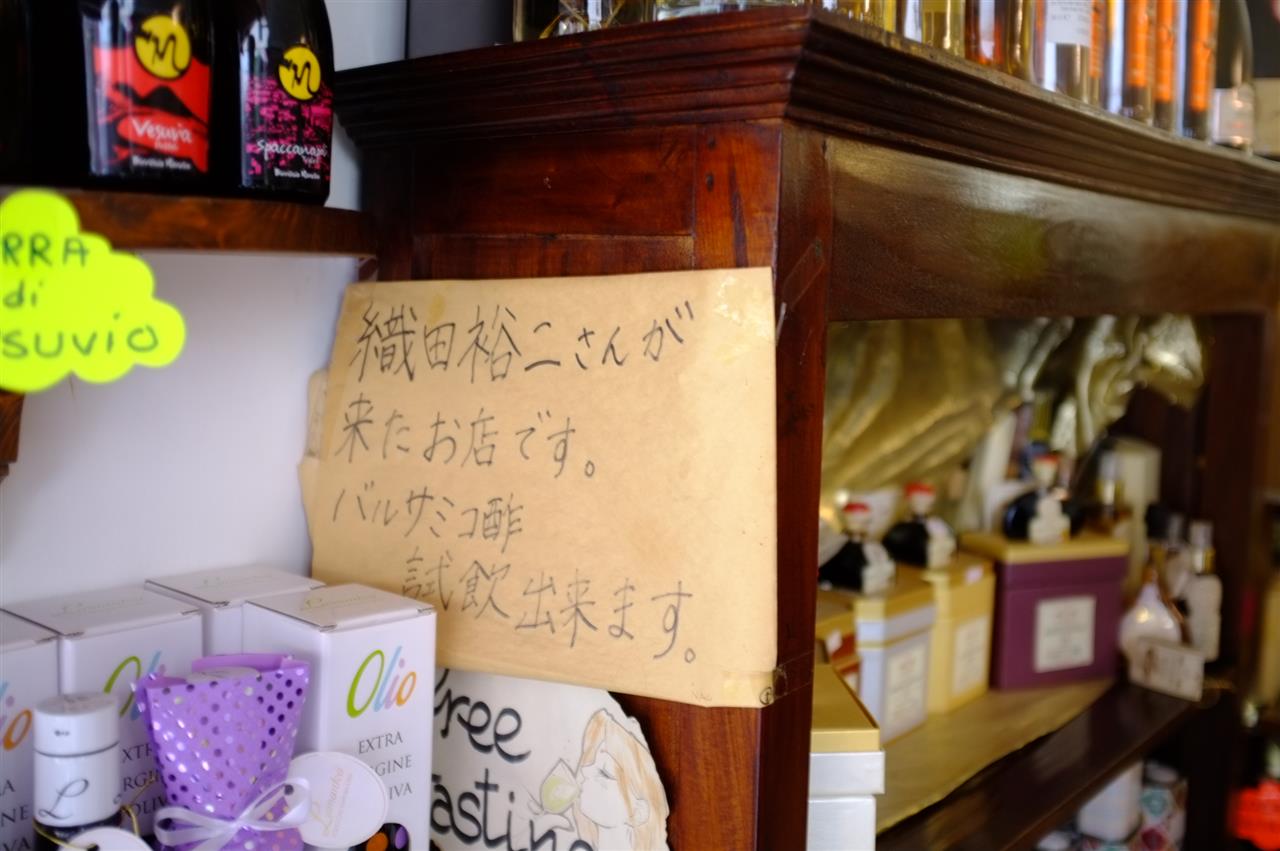 Vesuvia
Spaccanapoli
RRA
di
SUVIO
織田裕二さんが
来たお店です。
バルサミコ酢
試飲出来ます。
Olio
EXTRA
Free
Tasting